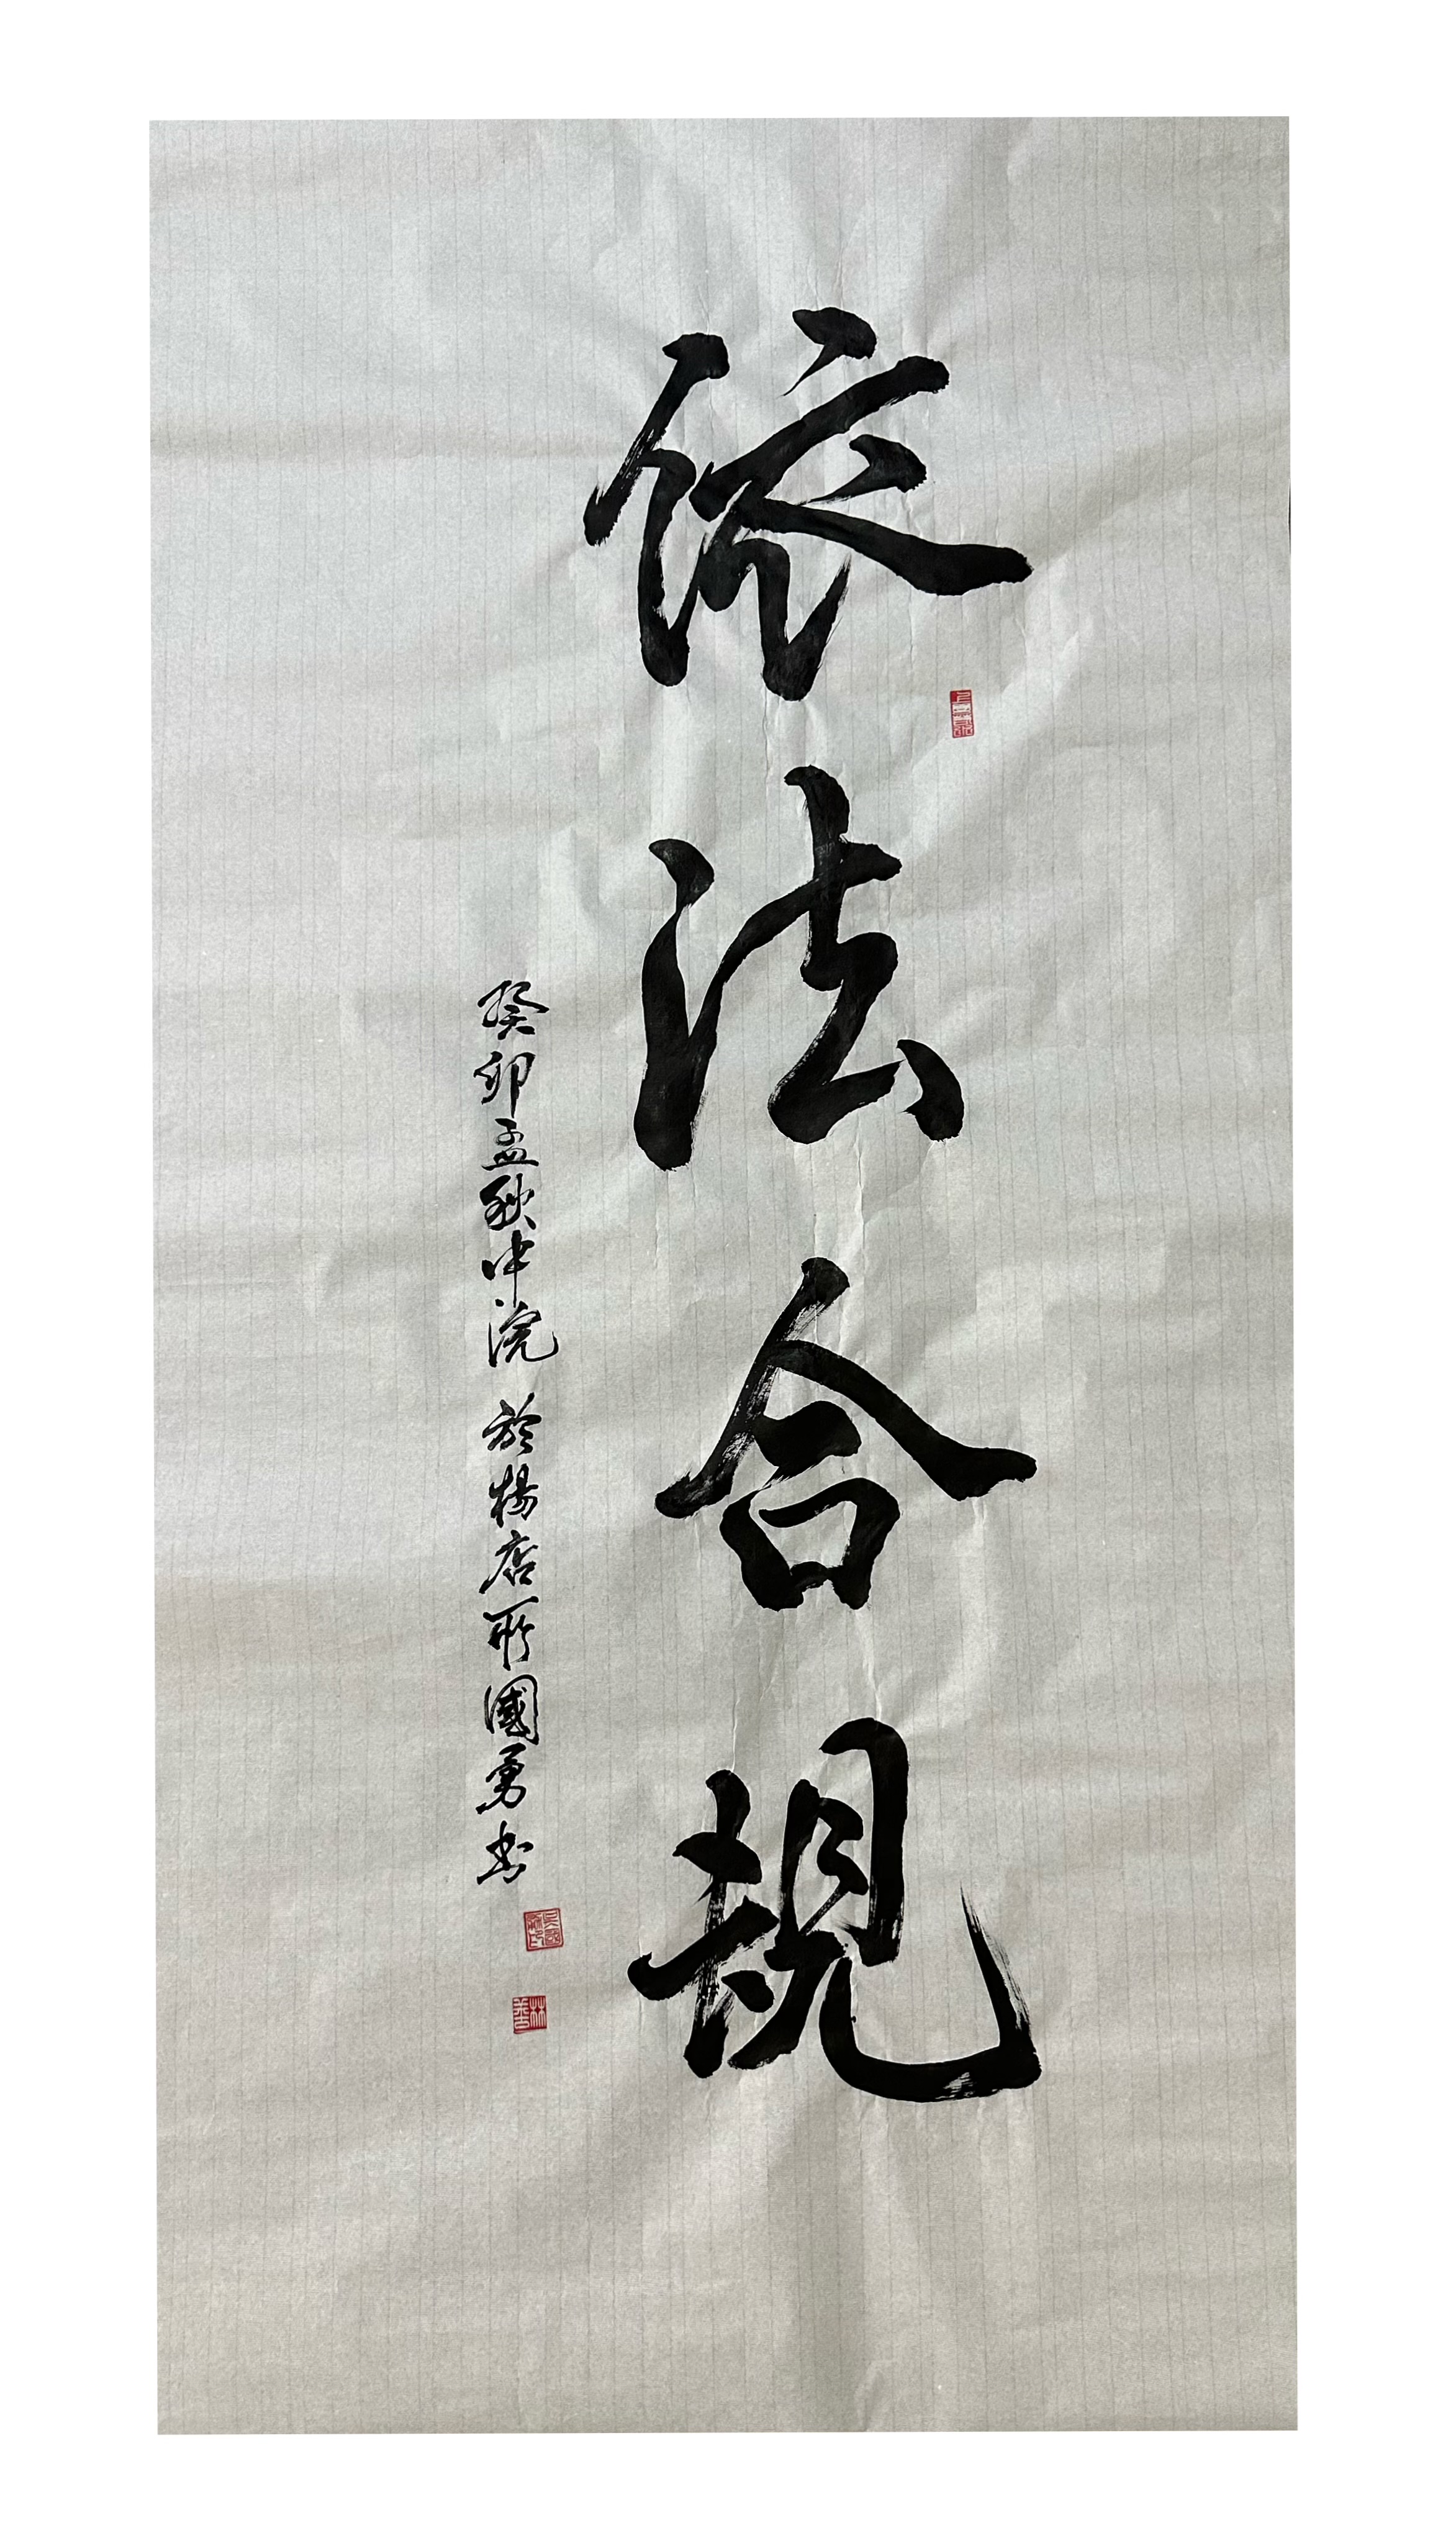 依法合規
癸卯孟秋中浣 於楊店所國勇书